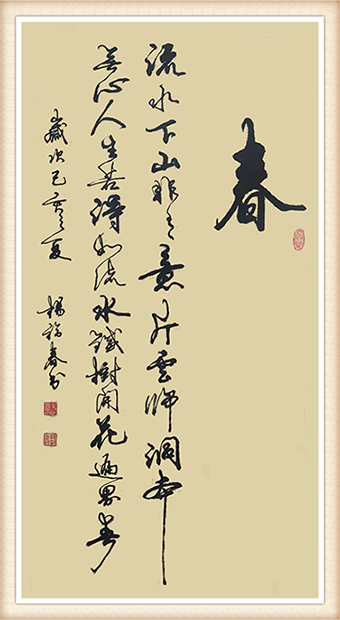 春
流水下山非有意片雲歸洞本
無心人生若得如流水鐵樹開花遍界春
歲次己亥之夏 楊福春書